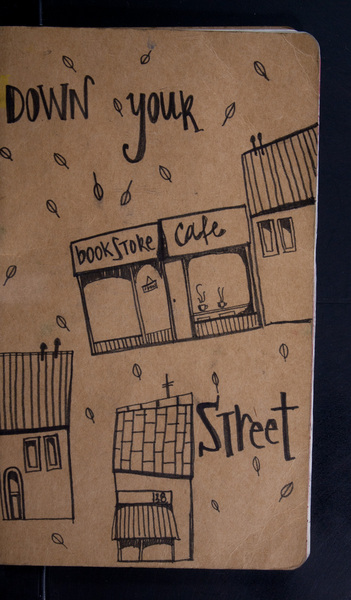 DOWN your
bookstore cafe
Street
138